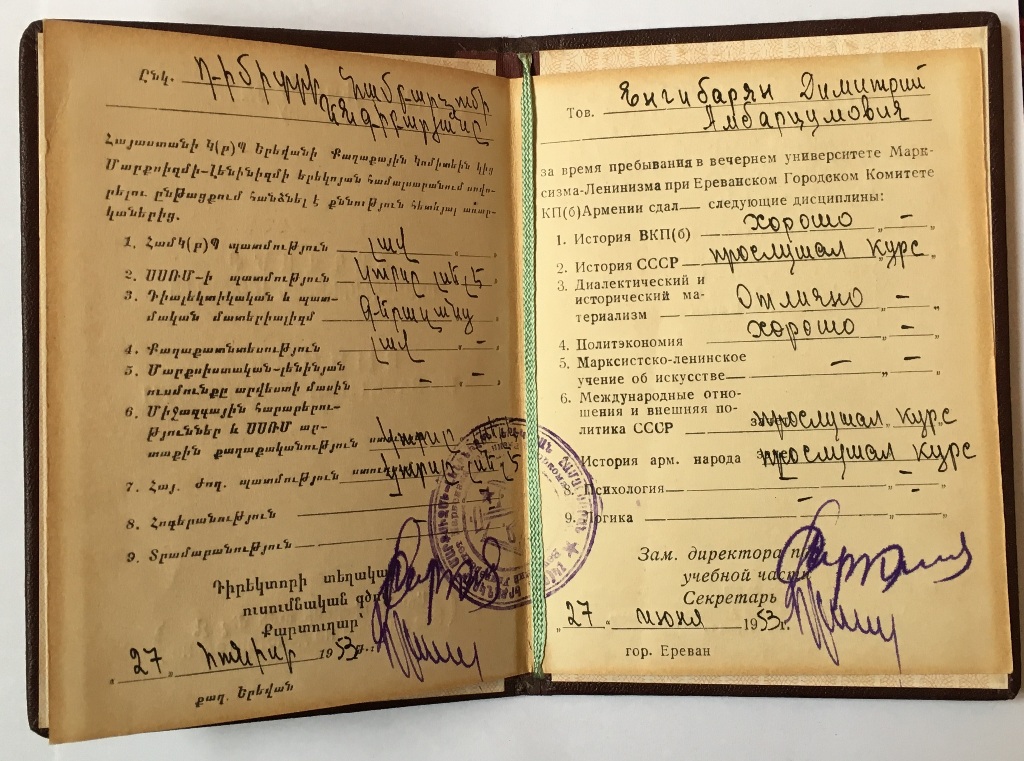 Ընկ. Դիմիտրի Համբարձումի
Ենգիբարյանը
Հայաստանի Կ(բ)Պ Երեվանի Քաղաքային Կոմիտեին կից
Մարքսիզմի-Լենինիզմի երեկոյան համալսարանում սովո-
րելու ընթացքում հանձնել է քննություն հետևյալ առար-
կաներից.
1. Համկ(բ)Պ պատմություն լավ „ „
2. ՍՍՌՄ-ի պատմություն կուրսը լսել է
3. Դիալեկտիկական և պատ-
մական մատերիալիզմ Գերազանց
4. Քաղաքատնտեսություն լավ „ – „
5. Մարքսիստական-լենինյան
ուսմունքը արվեստի մասին – „ – „
6. Միջազգային հարաբերու-
թյուններ և ՍՍՌՄ ար-
տաքին քաղաքականություն կուրսը լսել է
7. Հայ. ժող. պատմություն կուրսը լսել է
8. Հոգեբանություն
9. Տրամաբանություն
Դիրեկտորի տեղակալ
ուսումնական գծով
Քարտուղար՝
„27„ հունիսի 1953թ.
քաղ. Երեվան
Тов. Енгибарян Димитрий
Амбарцумович
за время пребывания в вечернем университете Марк-
сизма-Ленинизма при Ереванском Городском Комитете
КП(б)Армении сдал— следующие дисциплины:
1. История ВКП(б) хорошо „ – „
2. История СССР прослушал курс
3. Диалектический и
исторический ма-
териализм — Отлично – „
4. Политэкономия хорошо „ – „
5. Марксистско-ленинское
учение об искусстве — – „ – „
6. Международные отно-
шения и внешняя по-
литика СССР прослушал курс
История арм. народа прослушал курс
8. Психология — „ – „
9. Логика – „ – „
Зам. директора по
учебной части
Секретарь
„27„ июня 1953г.
гор. Ереван